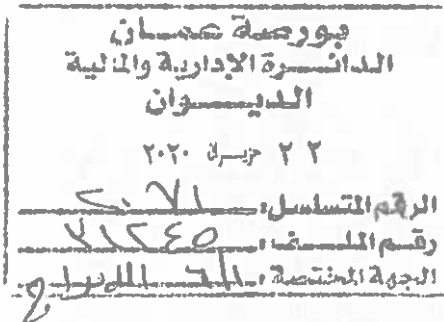 بورصة عمان
الدائرة الإدارية والمالية
الديوان
٢٢ حزيران ٢٠٢٠
الرقم المتسلسل:
رقم الملف: ٣١٢٤٥
الجهة المختصة: